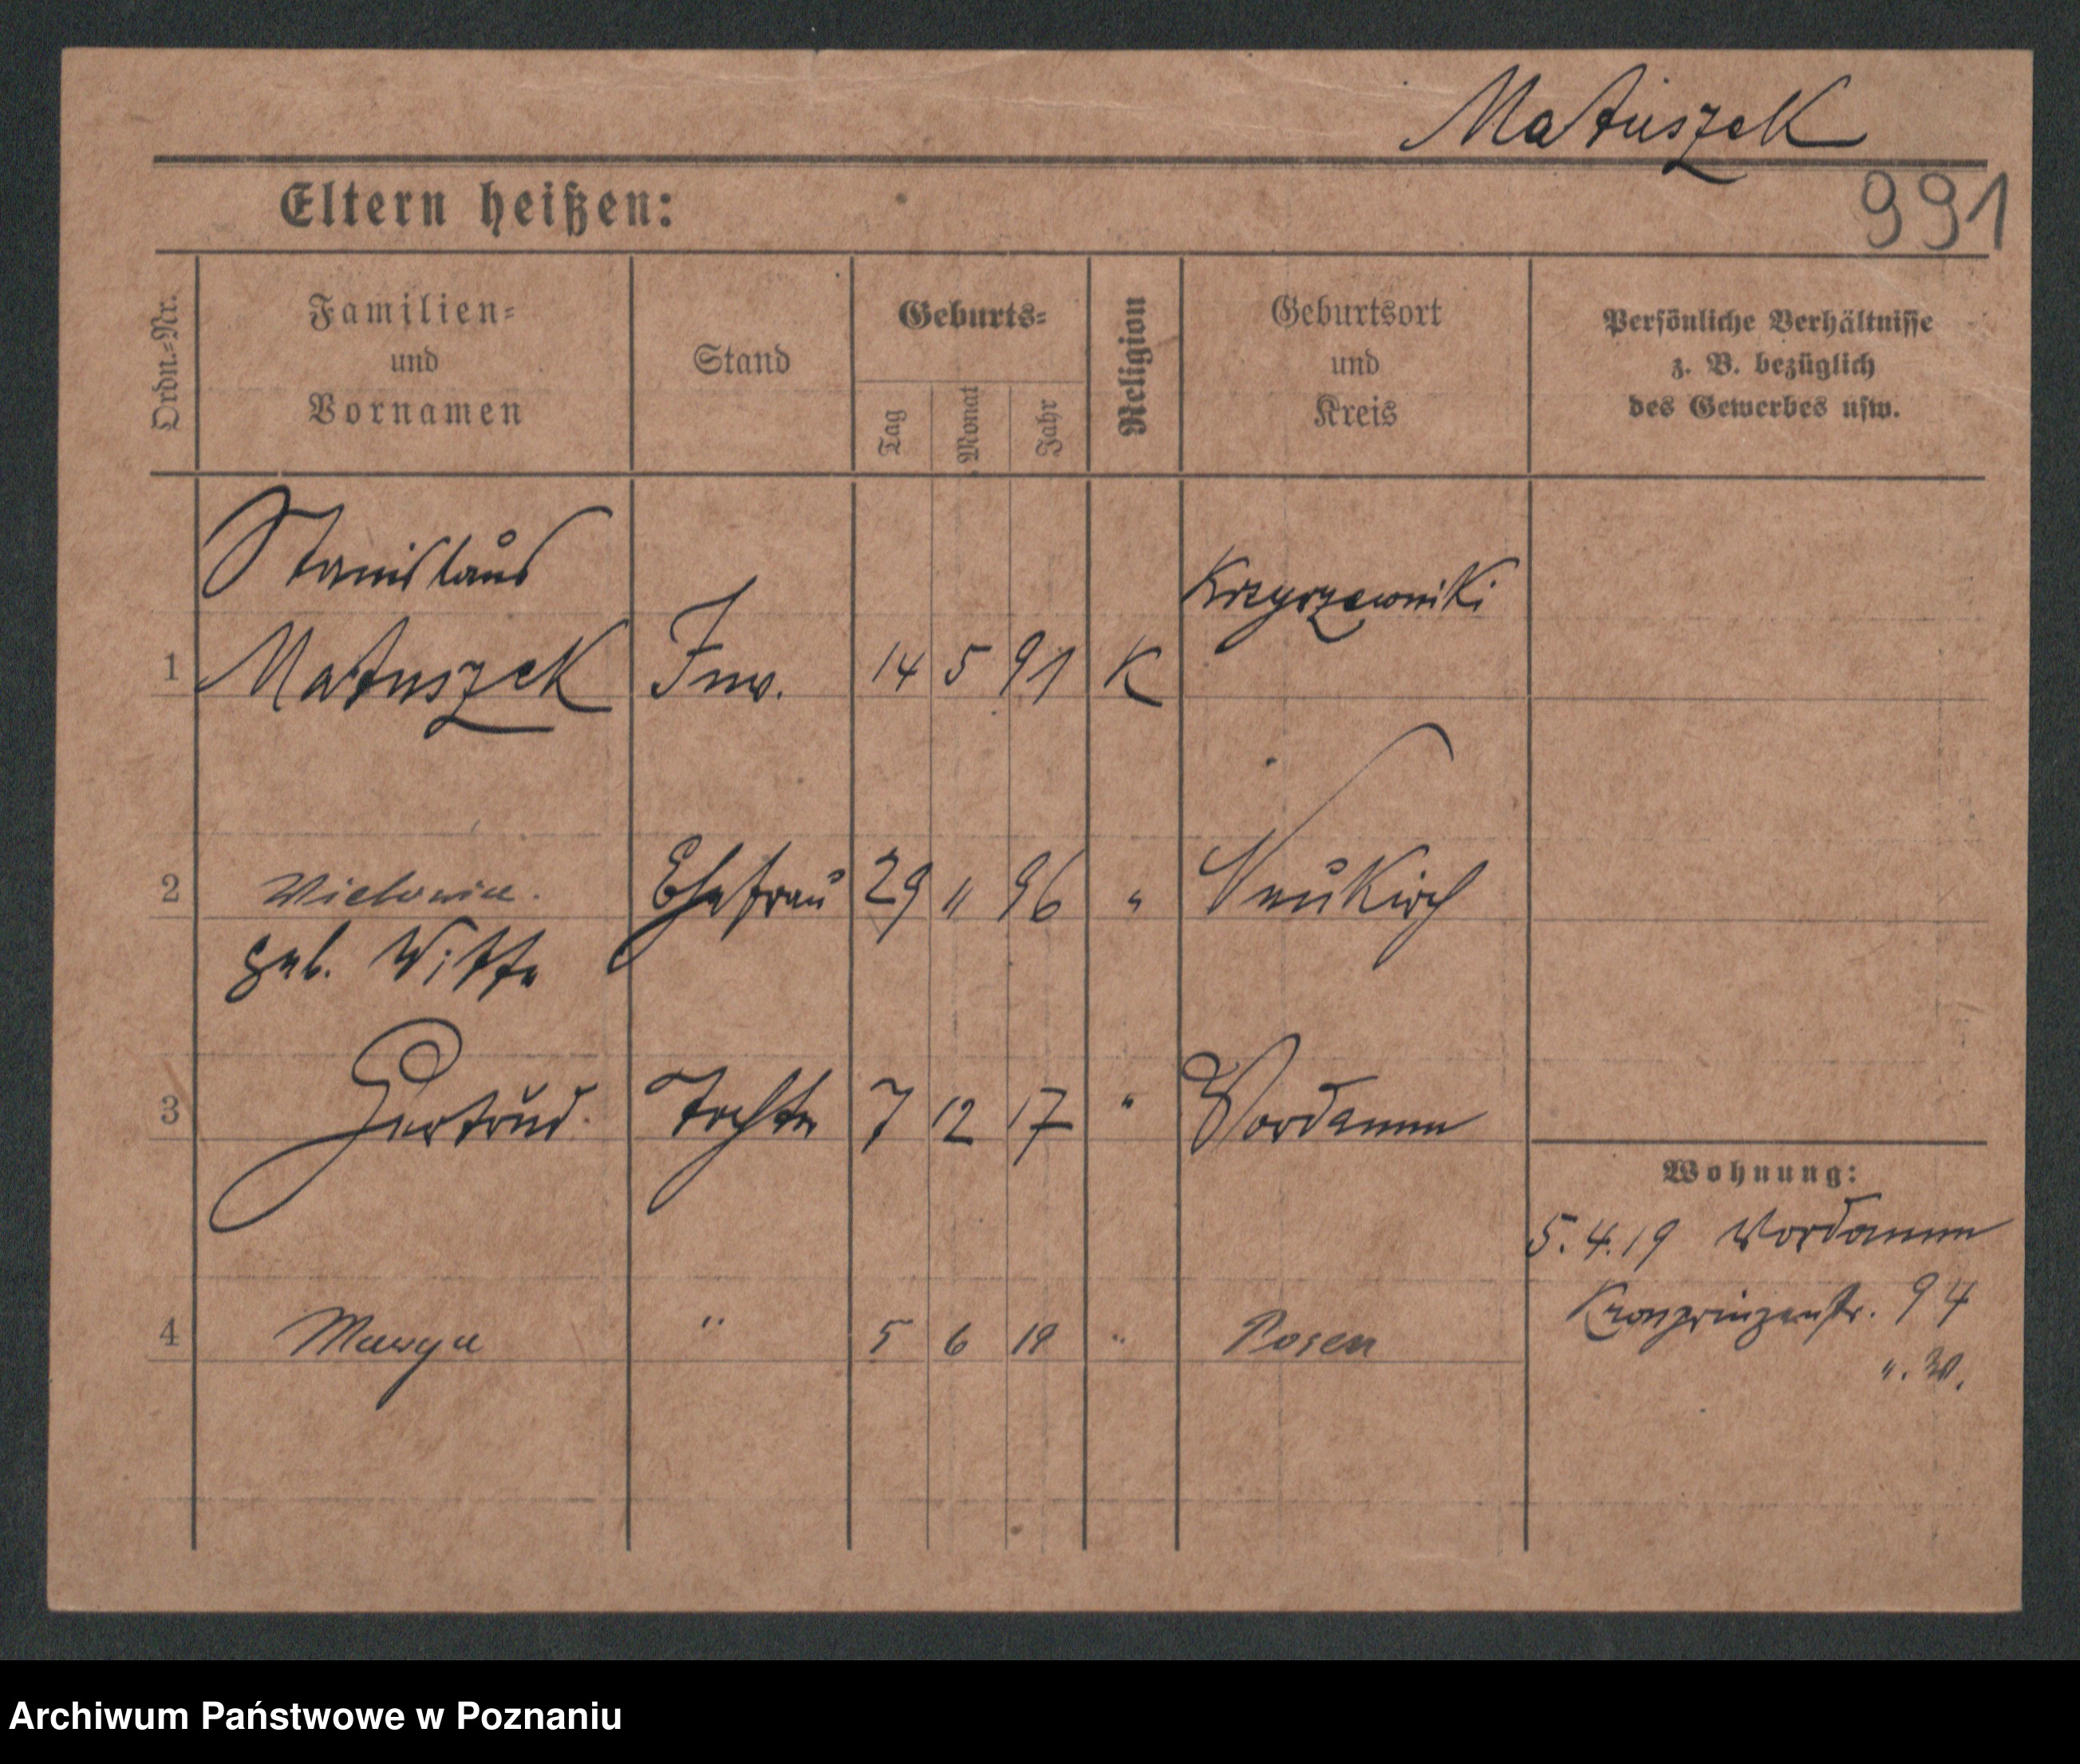 Matuszek
991
Eltern heißen:
Ordn.-Nr.
Familien-
und
Vornamen
Stand
Geburts-
Tag
Monat
Jahr
Religion
Geburtsort
und
Kreis
Persönliche Verhältnisse
z. B. bezüglich
des Gewerbes usw.
Stanislaus
1 Matuszek Inv. 14 5 91 K
2 Ehefrau 29 " 96 " Neukirch
geb. Witte
3 Gertrud Tochter 7 12 17 " Vordamm
Wohnung:
5.4.19 Vordamm
Kronprinzenstr. 94
4 Marya " 5 6 19 " Posen
Archiwum Państwowe w Poznaniu